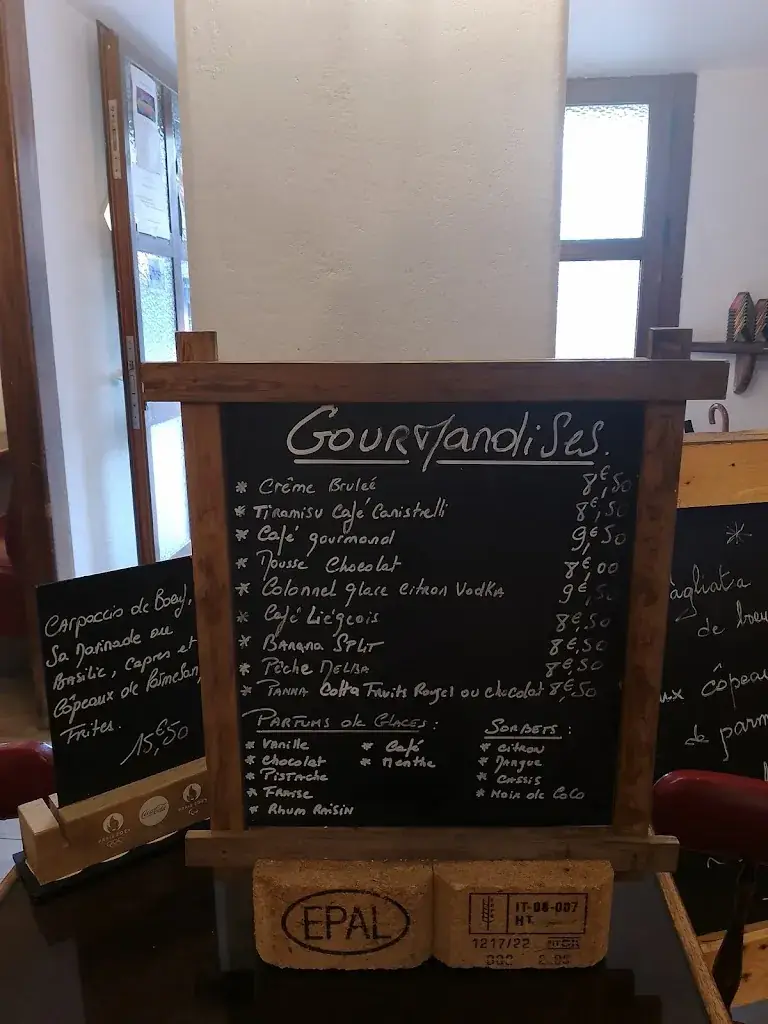 Gourmandises.
* Crême Bruleé 8€,50
* Tiramisu Café Canistrelli 8€,50
* Café gourmand 9€,50
* Mousse Chocolat 8€,00
* Colonnel glace citron Vodka 9€,50
* Café Liégeois 8€,50
* Banana Split 8€,50
* Pêche Melba 8€,50
* Panna Cotta Fruits Rouges ou chocolat 8€,50
Parfums de Glaces :
* Vanille
* Chocolat
* Pistache
* Fraise
* Rhum Raisin
* Café
* Menthe
Sorbets :
* Citron
* Mangue
* Cassis
* Noix de Coco
Carpaccio de Boeuf,
Sa Marinade au
Basilic, Capres et
Côpeaux de Parmesan,
Frites.
15€,50
*
agliata
de boeu
ux côpeau
de parm
EPAL
IT-06-007
HT
1217/22